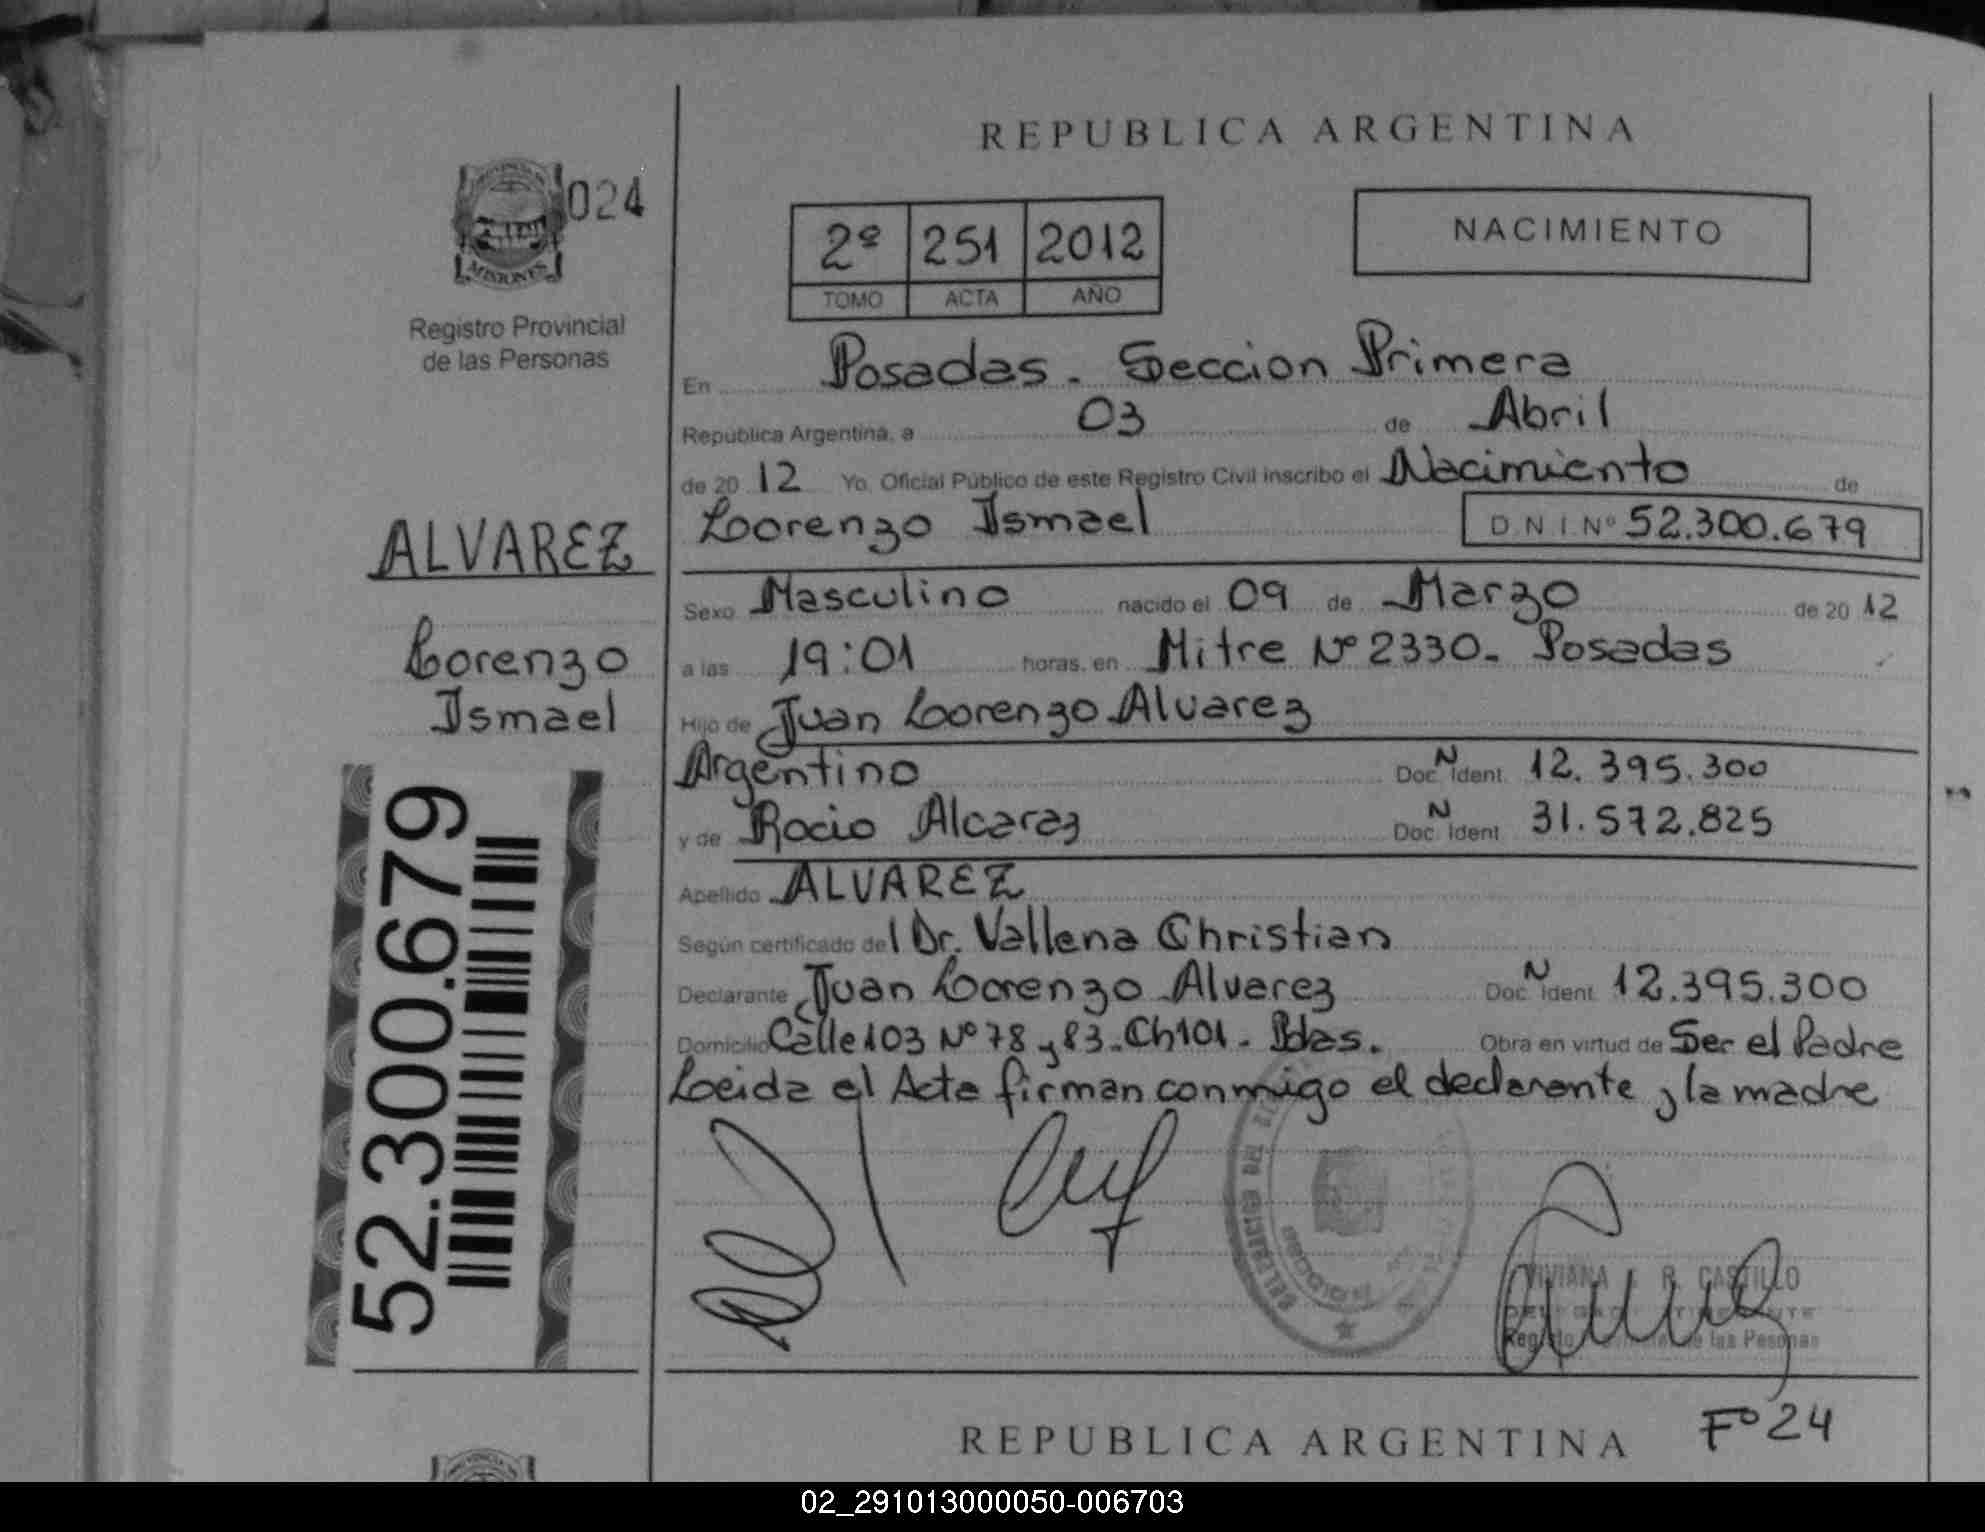 REPUBLICA ARGENTINA
024
MISIONES
Registro Provincial
de las Personas
2º 251 2012
TOMO ACTA AÑO
NACIMIENTO
En Posadas. Seccion Primera
República Argentina, a 03 de Abril
de 20 12 Yo, Oficial Público de este Registro Civil inscribo el Nacimiento de
Lorenzo Ismael D.N.I.Nº 52.300.679
ALVAREZ
Lorenzo
Ismael
Sexo Masculino nacido el 09 de Marzo de 20 12
a las 19:01 horas, en Mitre Nº 2330. Posadas
Hijo de Juan Lorenzo Alvarez
Argentino Doc. N Ident. 12.395.300
y de Rocio Alcaraz Doc. N Ident. 31.572.825
Apellido ALVAREZ
Según certificado del Dr. Vallena Christian
Declarante Juan Lorenzo Alvarez Doc. N Ident. 12.395.300
Domicilio Calle 103 Nº 78 y 83. Ch 101. Pdas. Obra en virtud de Ser el Padre
Leida el Acta firman conmigo el declarante y la madre
52.300.679
VIVIANA R. CASTILLO
de las Pesonas
REPUBLICA ARGENTINA
Fº 24
02_291013000050-006703